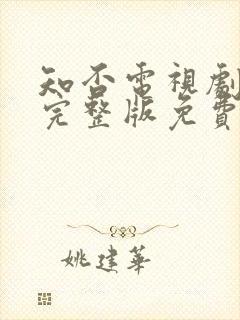 知否電視劇
完整版免費
姚建華